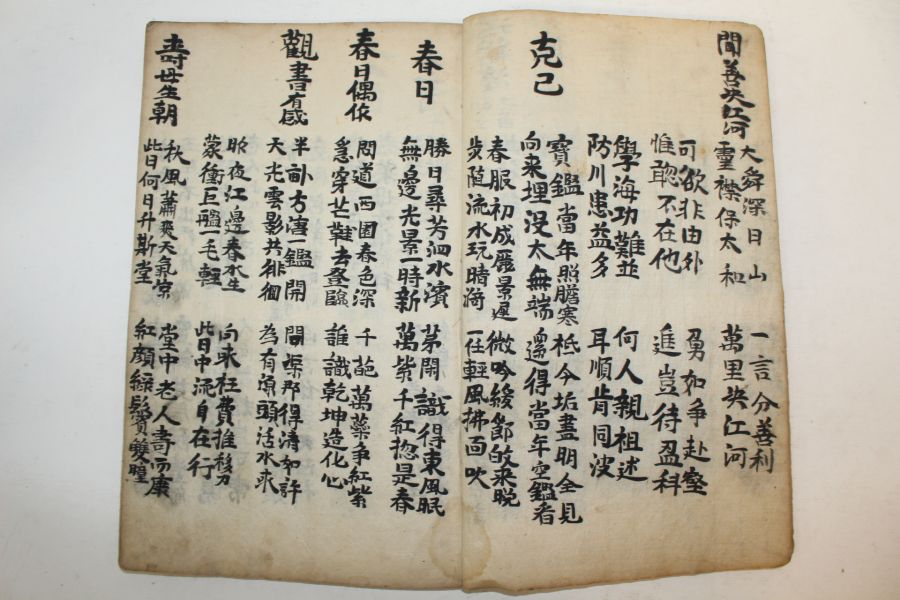 聞善决江河
大舜深日山
靈襟保太和
一言分善利
萬里决江河
可欲非由外
惟聰不在他
勇如争赴壑
進豈待盈科
學海功難並
防川患益多
何人親祖述
耳順肯同波
克己
寶鑑當年照膽寒
向来埋没太無端
秪今垢盡明全見
還得當年空鑑看
春服初成麗景遲
步随流水玩晴漪
微吟緩節敀来晚
一任輕風拂面吹
春日
勝日尋芳泗水濱
無邊光景一時新
茅閒識得東風眠
萬紫千紅惣是春
春日偶作
問道西園春色深
急穿芒鞋去登臨
千葩萬蘂争紅紫
誰識乾坤造化心
觀書有感
半畝方溏一鑑開
天光雲影共徘徊
問渠那得清如許
為有源頭活水来
昨夜江邊春水生
蒙衝巨艦一毛輕
向来枉費推移力
此日中流自在行
壽母生朝
秋風蕭爽天氣凉
此日何日升斯堂
堂中老人壽而康
紅顔綠鬢雙瞳